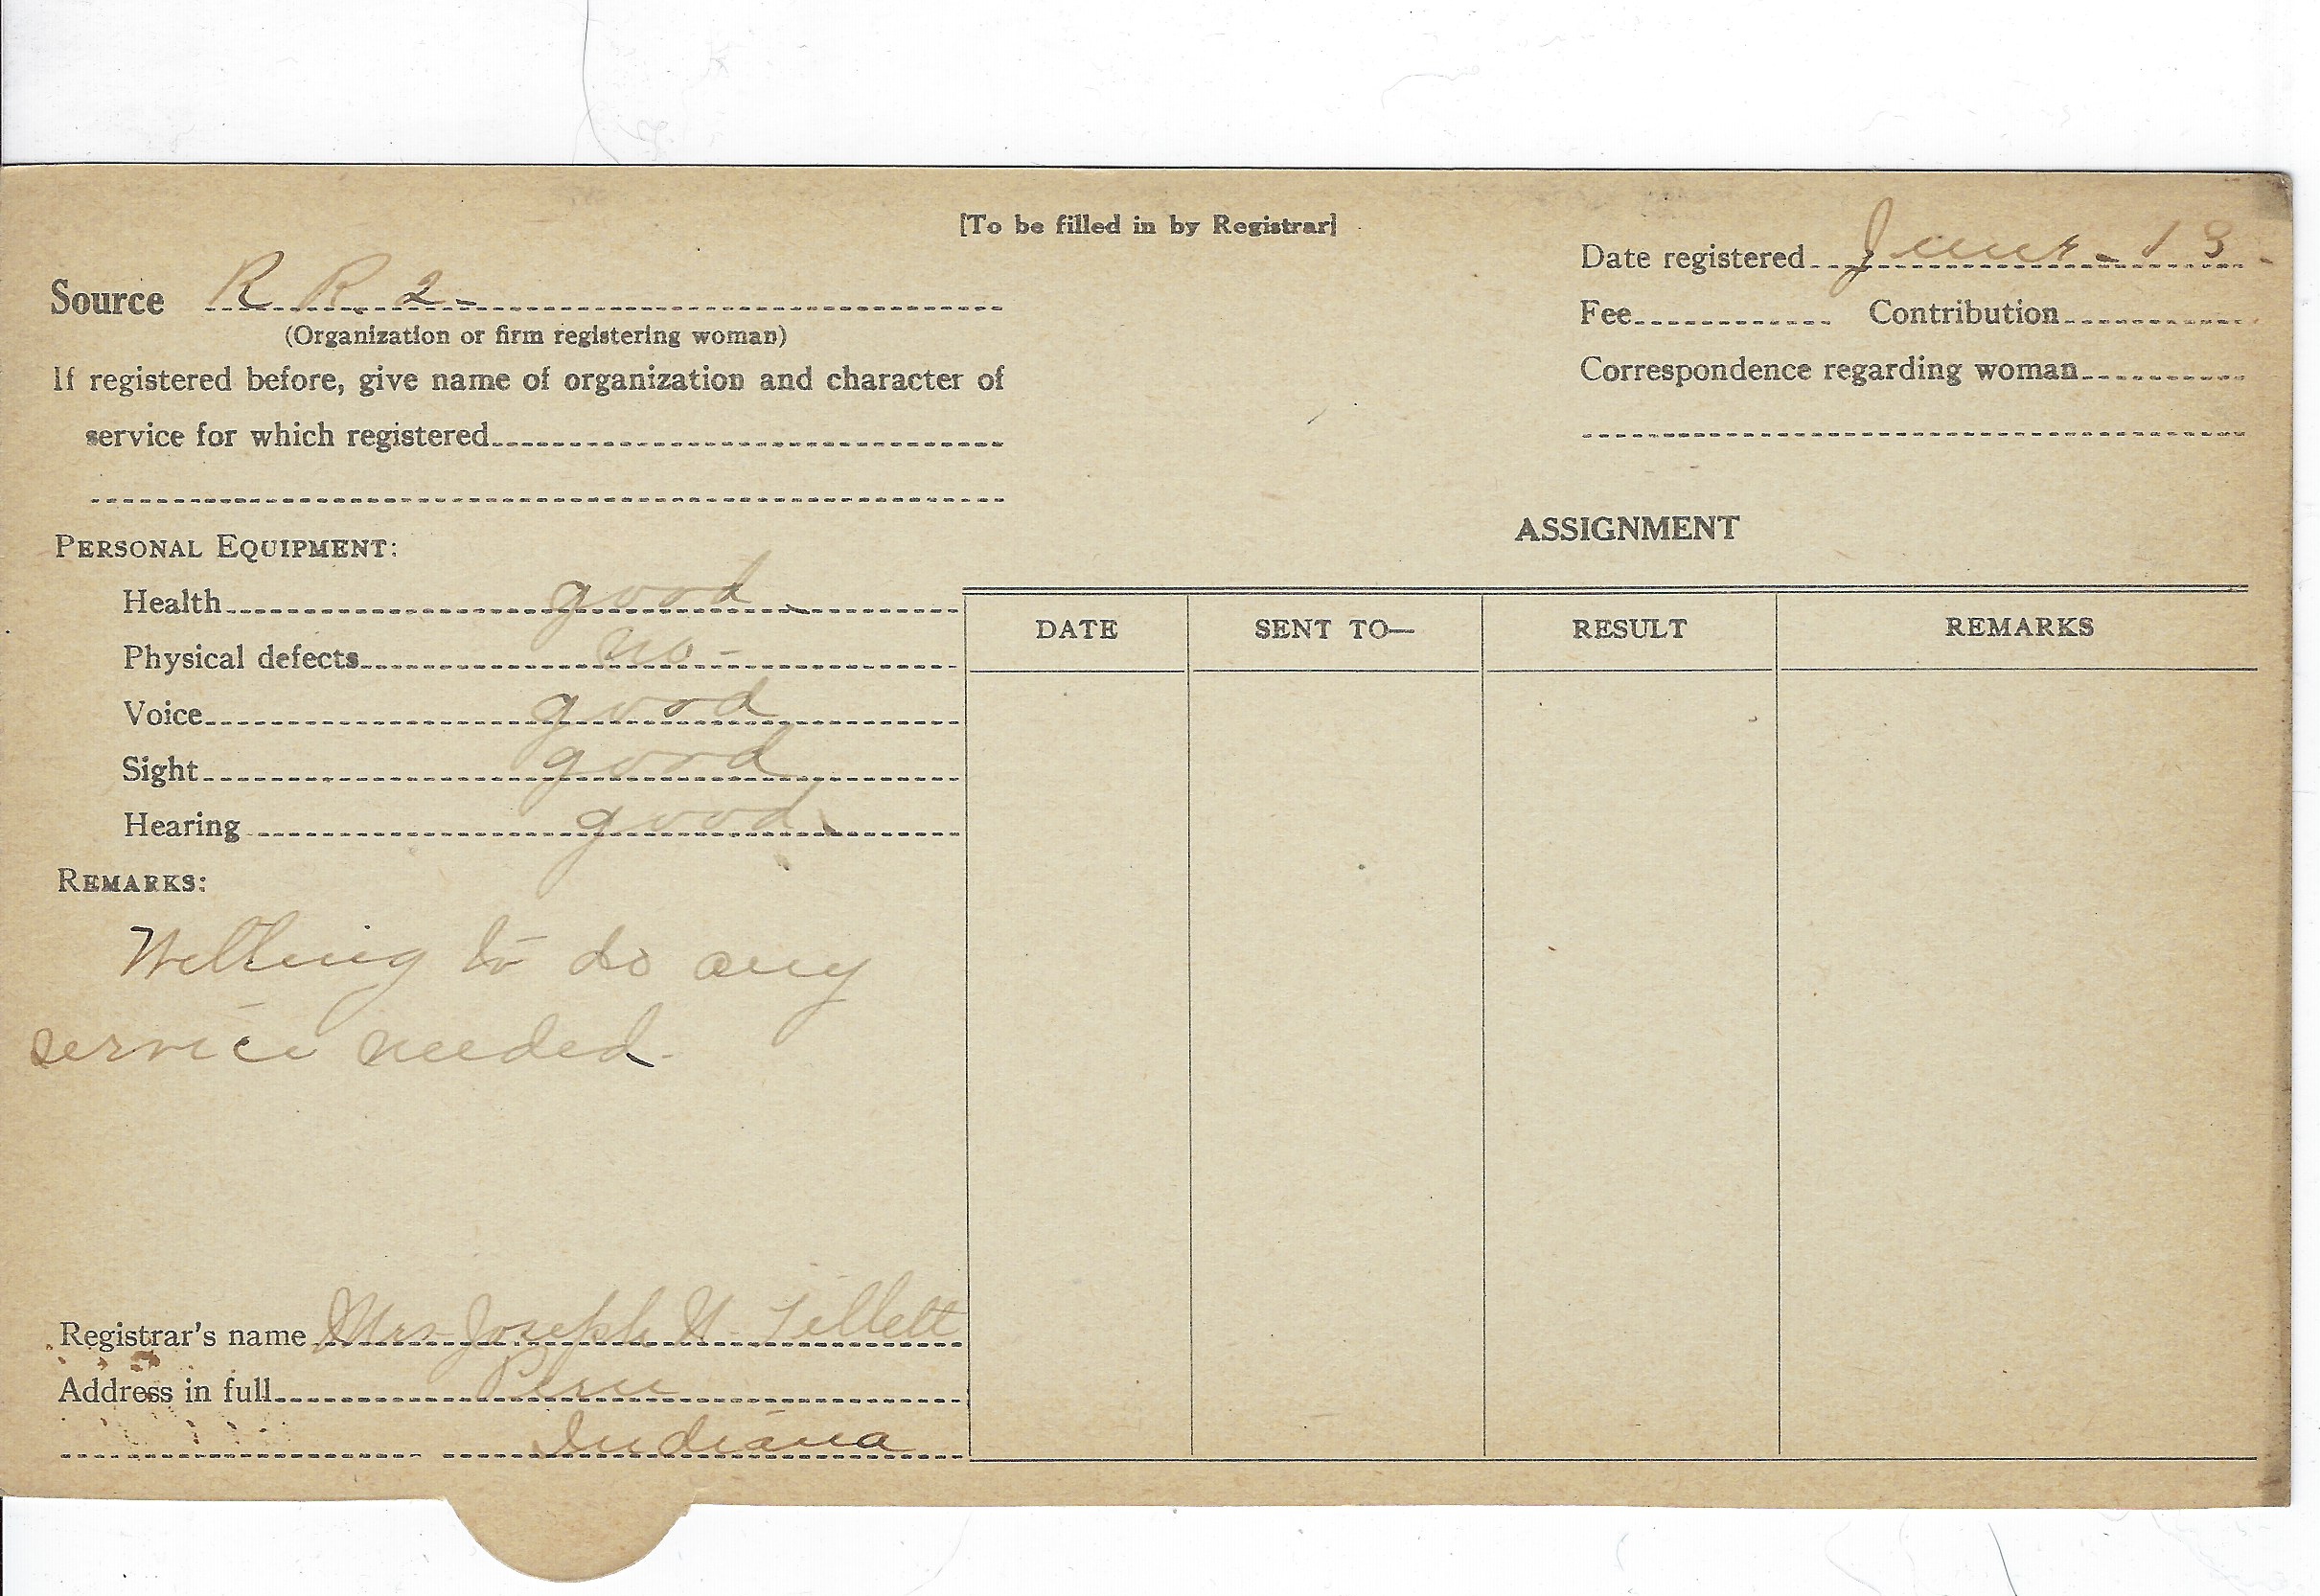 [To be filled in by Registrar]
Source R R. 2-
(Organization or firm registering woman)
If registered before, give name of organization and character of
service for which registered
Date registered June - 13 -
Fee Contribution
Correspondence regarding woman
PERSONAL EQUIPMENT:
Health good
Physical defects no -
Voice good
Sight good
Hearing good
REMARKS:
Willing to do any
service needed.
Registrar's name Mrs Joseph N. Tillett
Address in full Peru
Indiana
ASSIGNMENT
DATE SENT TO— RESULT REMARKS